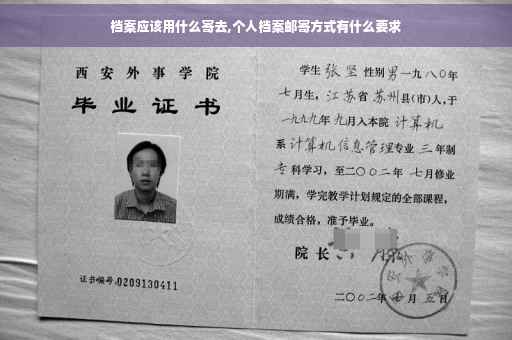 档案应该用什么寄去,个人档案邮寄方式有什么要求
西安外事学院
毕业证书
证书编号:0209130411
学生 张坚 性别男 一九八〇年
七月生, 江苏省 苏州县(市)人,于
一九九九年 九月入本院 计算机
系 计算机信息管理专业 三 年制
专科学习,至二〇〇二年 七月修业
期满,学完教学计划规定的全部课程,
成绩合格,准予毕业。
院长
二〇〇二年 七月 五日